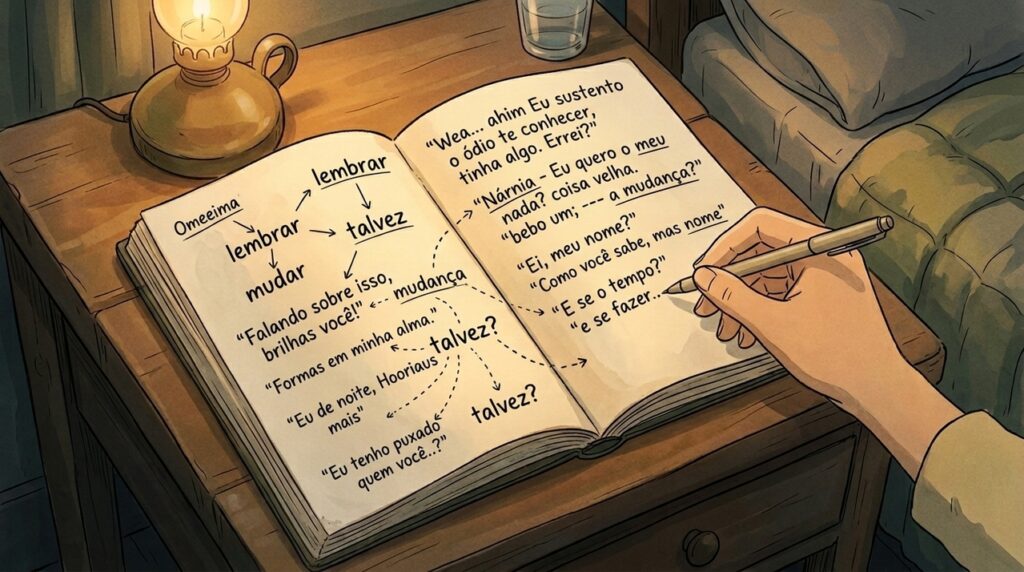 Omeeima
lembrar
lembrar
talvez
mudar
"Falando sobre isso,
brilhas você!"
mudança
"Formas em minha alma."
talvez?
"Eu de noite, Hooriaus
mais"
talvez?
"Eu tenho puxado
quem você..?"
"Wea... ahim Eu sustento
o ódio te conhecer,
tinha algo. Errei?"
"Nárnia - Eu quero o meu
nada? coisa velha.
"bebo um; --- a mudança?"
"Ei, meu nome?"
"Como você sabe, mas nome"
"E se o tempo?"
"e se fazer...